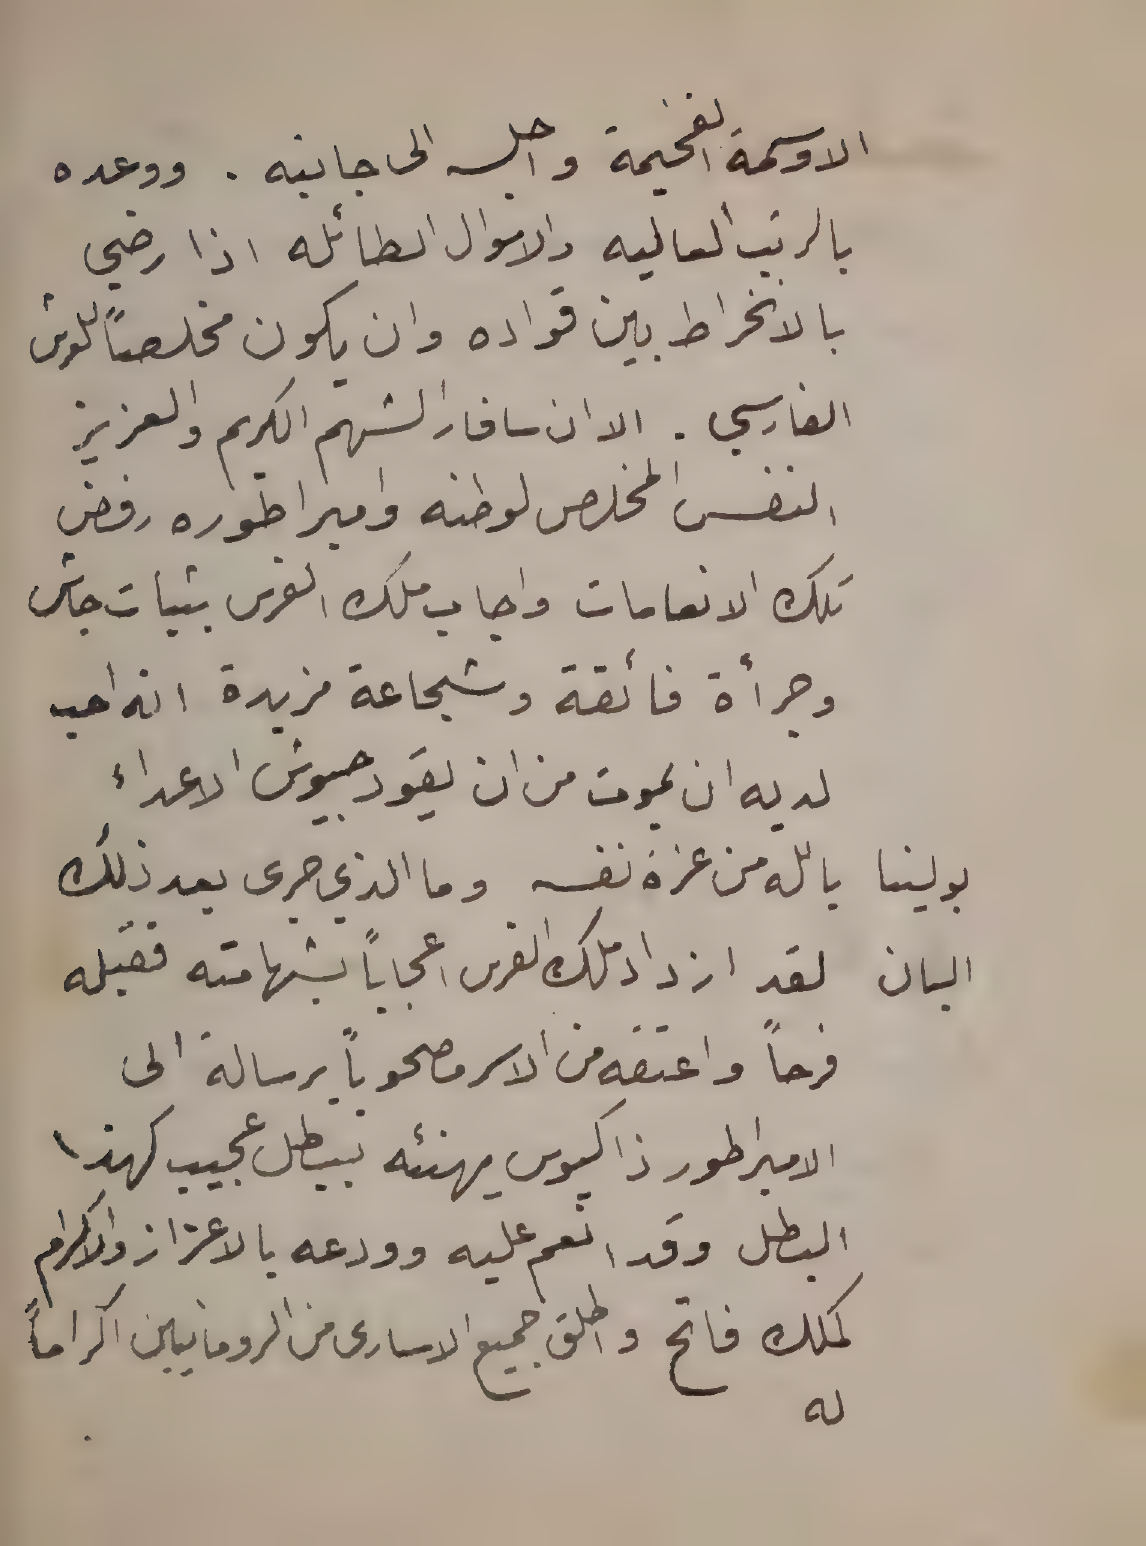 الاوسمة الفخيمة واجلسه الى جانبه . ووعده
بالرتب العاليه والاموال الطائله اذا رضي
بالانخراط بين قواده وان يكون مخلصاً للعرش
الفارسي . الا ان سافار الشهم الكريم والعزيز
النفس المخلص لوطنه واميراطوره رفض
تلك الانعامات واجاب ملك الفرس بثبات جاش
وجرأة فائقة وشجاعة مزيدة انه احب
لديه ان يموت من ان يقود جيوش الاعداء
بولينا يالله من عزة نفسه وما الذي جرى بعد ذلك
البان لقد ازداد ملك الفرس اعجاباً بشهامته فقبله
فرحاً واعتقه من الاسر مصحوباً برسالة الى
الاميراطور ذاكيوس يهنئه ببطل عجيب كهذا
البطل وقد انعم عليه وودعه بالاعزاز والاكرام
كملك فاتح واطلق جميع الاسارى من الرومانيين اكراماً
له